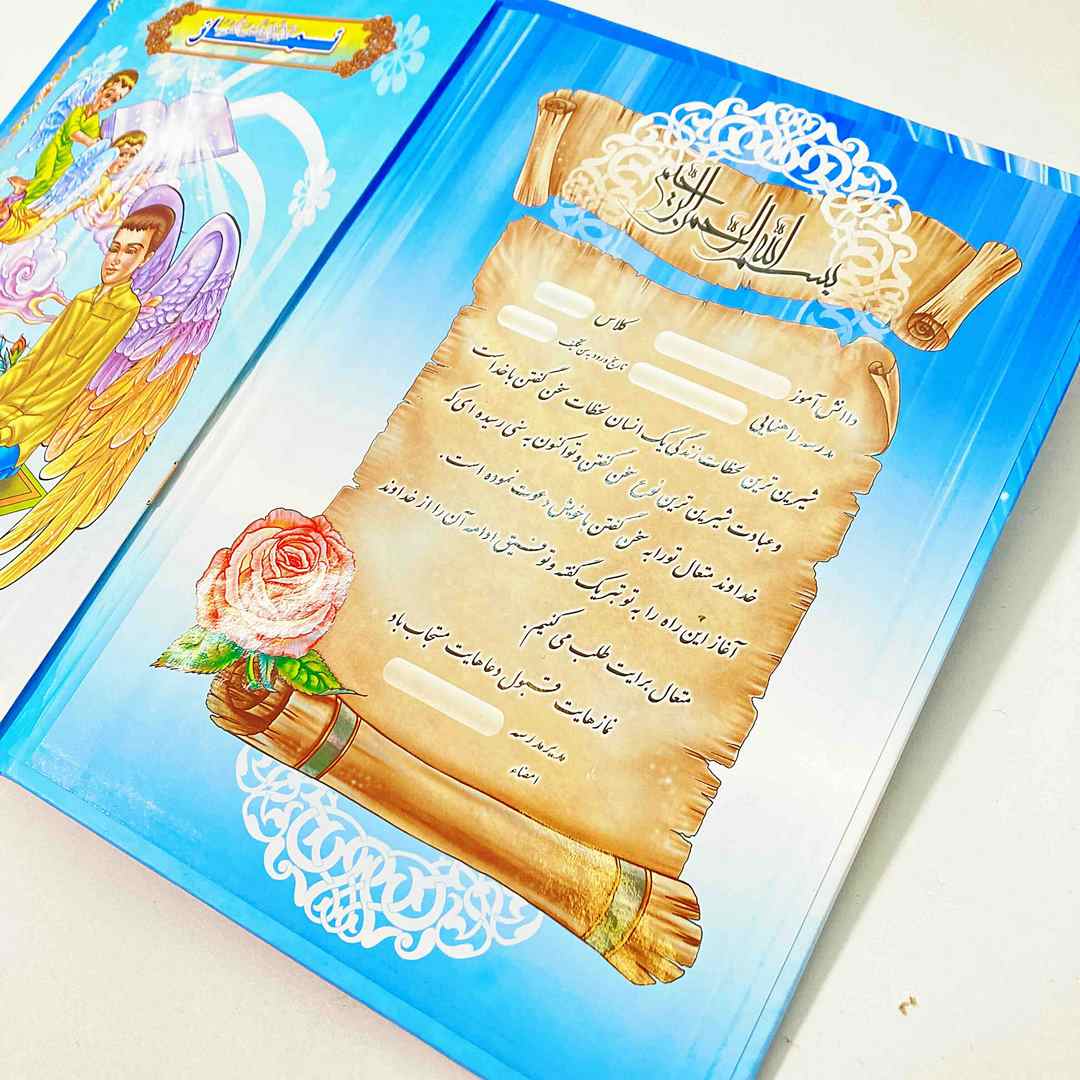 نماز
بسم الله الرحمن الرحیم
دانش آموز کلاس
مدرسه راهنمایی تاریخ ورود به سن تکلیف
شیرین ترین لحظات زندگی یک انسان لحظات سخن گفتن با خداست
و عبادت شیرین ترین نوع سخن گفتن و تو اکنون به سنی رسیده ای که
خداوند متعال تو را به سخن گفتن با خویش دعوت نموده است .
آغاز این راه را به تو تبریک گفته و توفیق ادامه آن را از خداوند
متعال برایت طلب می کنیم .
نمازهایت قبول دعاهایت مستجاب باد
مدیر مدرسه
امضاء